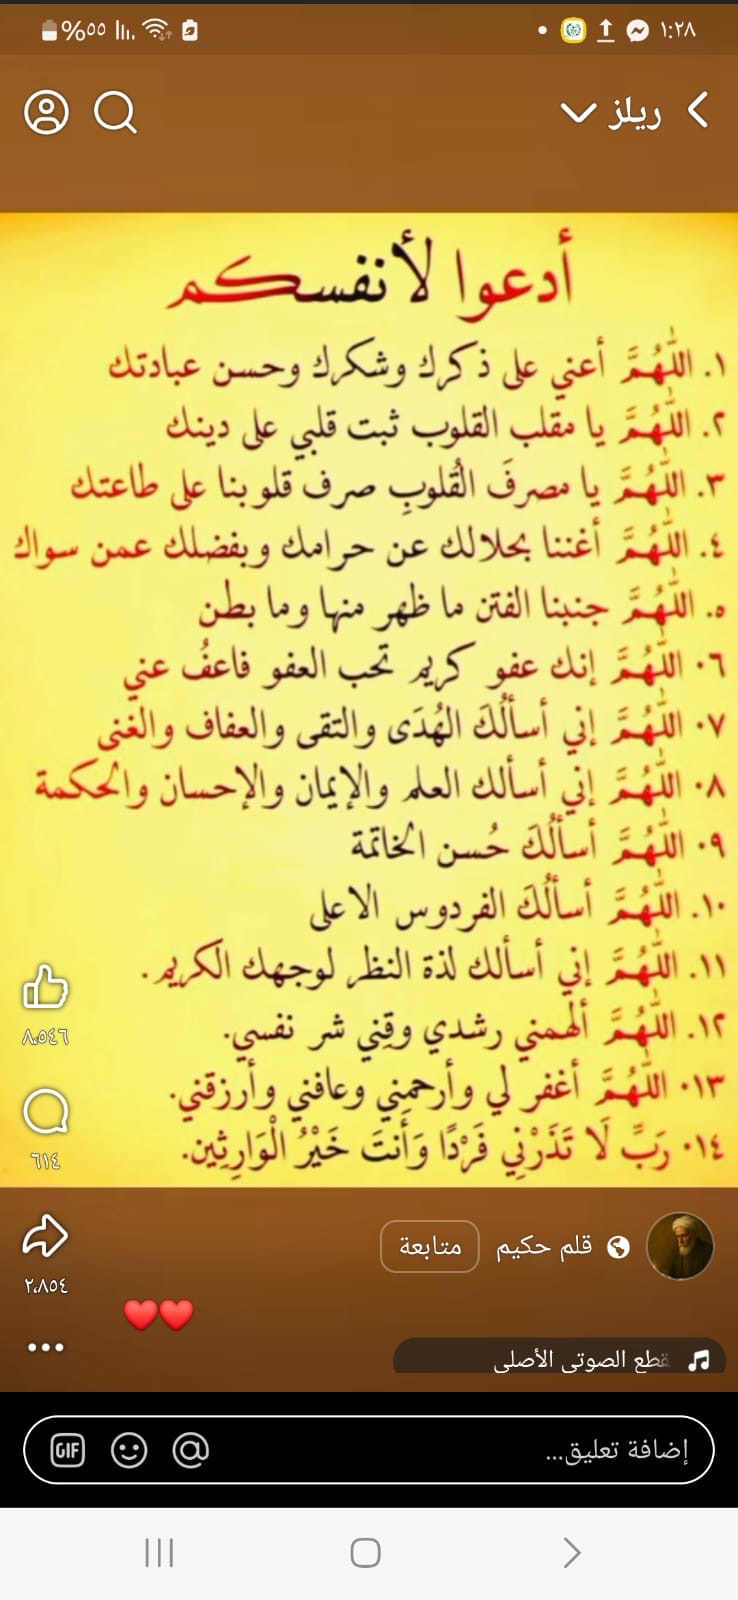 ١:٢٨
%٥٥
ريلز
أدعوا لأنفسكم
١. اللَّهُمَّ أعني على ذكرك وشكرك وحسن عبادتك
٢. اللَّهُمَّ يا مقلب القلوب ثبت قلبي على دينك
٣. اللَّهُمَّ يا مصرفَ القُلوبِ صرف قلوبنا على طاعتك
٤. اللَّهُمَّ أغننا بحلالك عن حرامك وبفضلك عمن سواك
٥. اللَّهُمَّ جنبنا الفتن ما ظهر منها وما بطن
٦. اللَّهُمَّ إنك عفو كريم تحب العفو فاعفُ عني
٧. اللَّهُمَّ إني أسألُكَ الهُدَى والتقى والعفاف والغنى
٨. اللَّهُمَّ إني أسألك العلم والإيمان والإحسان والحكمة
٩. اللَّهُمَّ أسألُكَ حُسن الخاتمة
١٠. اللَّهُمَّ أسألُكَ الفردوس الاعلى
١١. اللَّهُمَّ إني أسألك لذة النظر لوجهك الكريم.
١٢. اللَّهُمَّ ألهمني رشدي وقِني شر نفسي.
١٣. اللَّهُمَّ أغفر لي وأرحمِني وعافني وأرزقني.
١٤. رَبِّ لَا تَذَرْنِي فَرْدًا وَأَنتَ خَيْرُ الْوَارِثِين.
٨،٥٤٦
٦١٤
٢،٨٥٤
قلم حكيم
متابعة
قطع الصوتي الأصلي
إضافة تعليق...
GIF